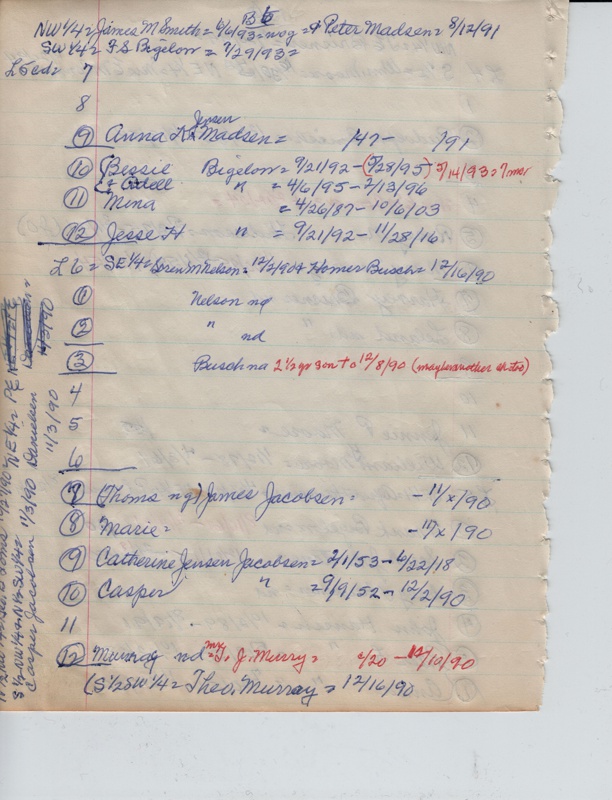 B6
NW 1/4 = James M Smith = 6/6/93 = nog = & Peter Madsen = 8/12/91
SW 1/4 = F S Bigelow = 7/29/93 =
L5cd = 7
8
Jensen
9 Anna K. Madsen = /47 - /91
10 (Bessie Bigelow = 9/21/92 - (5/28/95) 5/14/93 = 7 mos
& Odell " = 4/6/95 - 2/13/96
11 Mina = 4/26/87 - 10/6/03
12 Jesse H " = 9/21/92 - 11/28/16
L6 = SE 1/4 = Soren M Nelson = 12/2/90 & Homer Busch = 12/16/90
1 Nelson ng
2 " nd
3 Busch na 2 1/2 yr son to 12/8/90 (maybe another ch too)
4
5
6
7 (Thoms ng) James Jacobsen = - 11/x/90
8 Marie = - 11/x/90
9 Catherine Jensen Jacobsen = 2/1/53 - 6/22/18
10 Casper " = 9/9/52 - 12/2/90
11
12 Murray nd = Mrs T. J. Murry = 2/20 - 12/10/90
(S 1/2 SW 1/4 = Theo. Murray = 12/16/90
S 1/2 NW 1/4 + N 1/2 SW 1/4 = 11/3/90 Danielsen 11/3/90
Casper Jacobsen